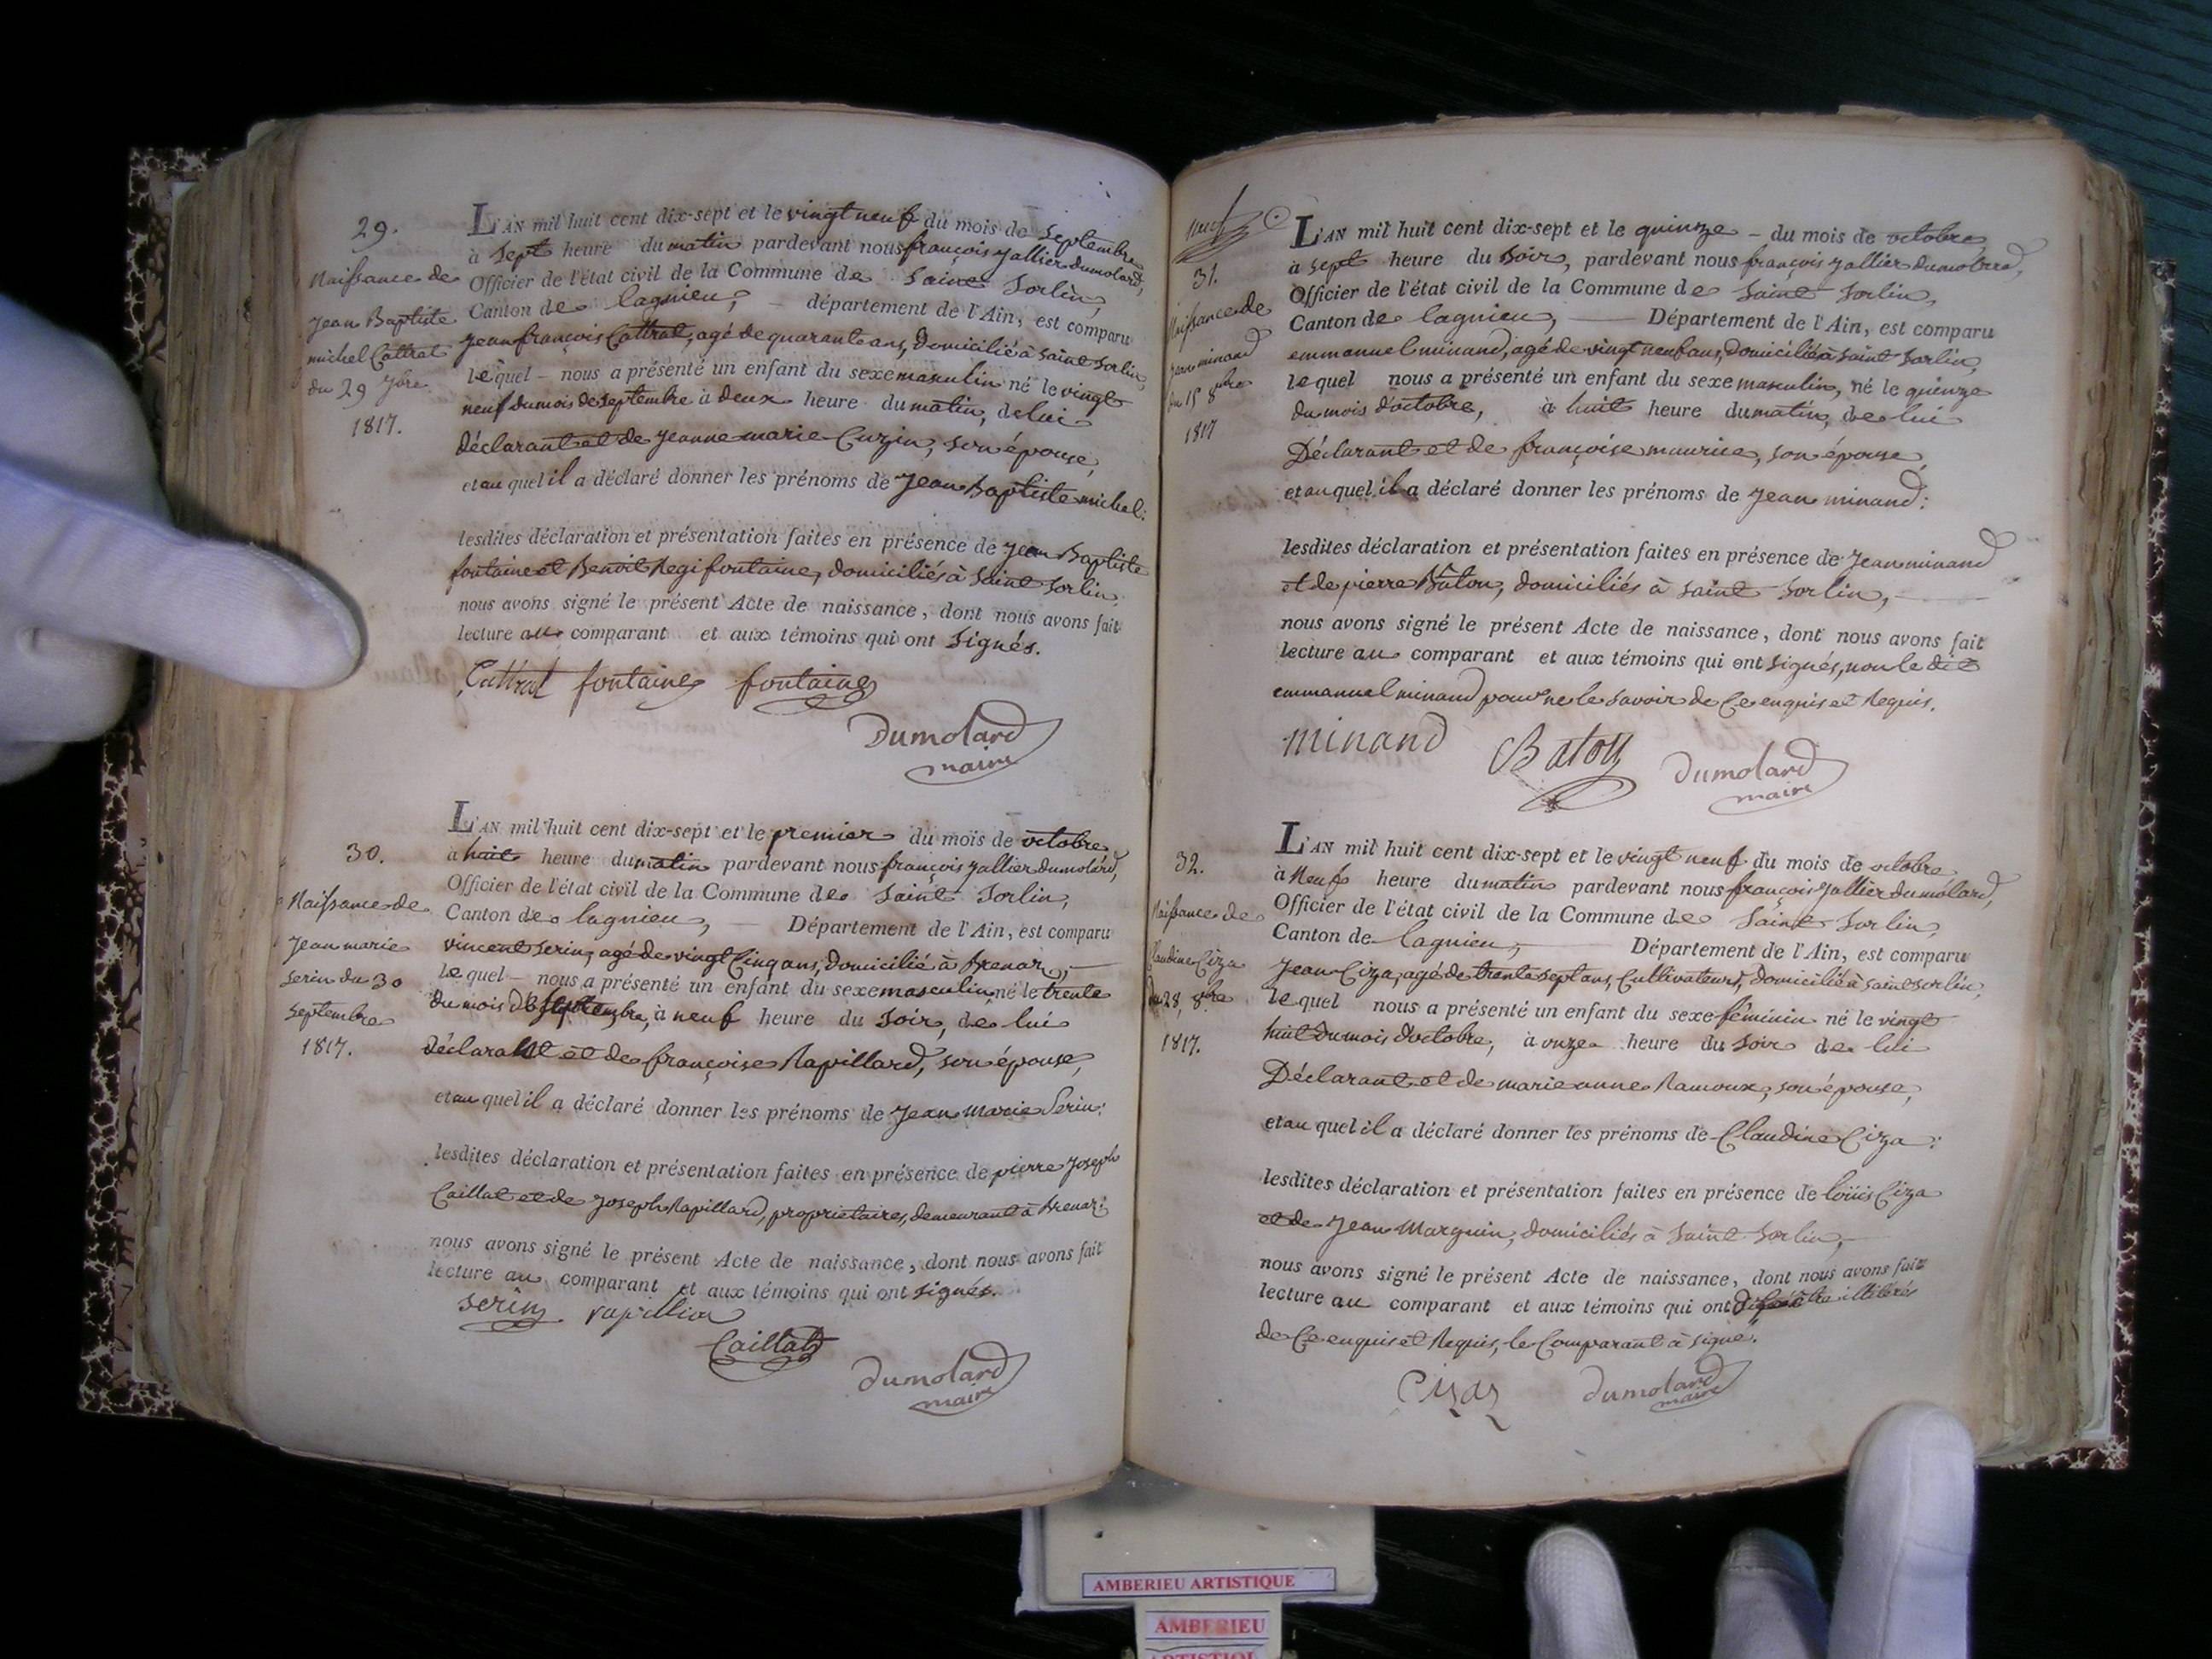 29.
Naissance de
Jean Baptiste
michel Cattrat
du 29 7bre
1817.
L'AN mil huit cent dix-sept et le vingt neuf du mois de septembre
à sept heure du matin pardevant nous françois jallier dumolard,
Officier de l'état civil de la Commune de Saint Sorlin,
Canton de lagnieu, – département de l'Ain, est comparu
jean françois Cattrat, agé de quarante ans, domicilié à saint sorlin,
lequel – nous a présenté un enfant du sexe masculin né le vingt
neuf du mois de septembre à deux heure du matin, de lui
déclarant et de jeanne marie Cuzin, son épouse,
et au quel il a déclaré donner les prénoms de jean Baptiste michel:
lesdites déclaration et présentation faites en présence de jean Baptiste
fontaine et Benoit Regi fontaine, domiciliés à saint sorlin,
nous avons signé le présent Acte de naissance, dont nous avons fait
lecture au comparant et aux témoins qui ont signés.
Cattrat fontaine fontaine
Dumolard
maire
30.
Naissance de
jean marie
serin du 30
septembre
1817.
L'AN mil huit cent dix-sept et le premier du mois de octobre
à huit heure du matin pardevant nous françois jallier dumolard,
Officier de l'état civil de la Commune de Saint Sorlin,
Canton de lagnieu, – Département de l'Ain, est comparu
vincent serin, agé de vingt Cinq ans, domicilié à Brenaz, –
lequel – nous a présenté un enfant du sexe masculin, né le trente
du mois de septembre, à neuf heure du soir, de lui
déclarant et de françoise Rapillard, son épouse,
et au quel il a déclaré donner les prénoms de jean marie Serin:
lesdites déclaration et présentation faites en présence de pierre joseph
Caillat et de joseph Rapillard, propriétaires, demeurant à Brenaz:
nous avons signé le présent Acte de naissance, dont nous avons fait
lecture au comparant et aux témoins qui ont signés.
serin rapillion
Caillat
dumolard
maire
31.
Naissance de
jean minand
du 15 8bre
1817
L'AN mil huit cent dix-sept et le quinze – du mois de octobre
à sept heure du soir, pardevant nous françois jallier dumolard,
Officier de l'état civil de la Commune de Saint Sorlin,
Canton de lagnieu, – Département de l'Ain, est comparu
emmanuel minand, agé de vingt neuf ans, domicilié à saint sorlin,
lequel nous a présenté un enfant du sexe masculin, né le quinze
du mois d'octobre, à huit heure du matin, de lui
Déclarant et de françoise maurice, son épouse,
et au quel il a déclaré donner les prénoms de jean minand:
lesdites déclaration et présentation faites en présence de jean minand
et de pierre Bâton, domiciliés à saint sorlin, –
nous avons signé le présent Acte de naissance, dont nous avons fait
lecture au comparant et aux témoins qui ont signés, non le dit
emmanuel minand pour ne le savoir de Ce enquis et Requis.
minand Baton dumolard
maire
32.
Naissance de
Claudine Ciza
du 28, 8bre
1817.
L'AN mil huit cent dix-sept et le vingt neuf du mois de octobre
à Neuf heure du matin pardevant nous françois jallier dumolard,
Officier de l'état civil de la Commune de Saint Sorlin,
Canton de lagnieu, – Département de l'Ain, est comparu
jean Ciza, agé de trente sept ans, Cultivateur, domicilié à saint sorlin,
lequel nous a présenté un enfant du sexe féminin né le vingt
huit du mois d'octobre, à onze heure du soir de lui
Déclarant et de marie anne Ramoux, son épouse,
et au quel il a déclaré donner les prénoms de Claudine Ciza:
lesdites déclaration et présentation faites en présence de loüis Ciza
et de jean Marguin, domiciliés à saint sorlin, –
nous avons signé le présent Acte de naissance, dont nous avons fait
lecture au comparant et aux témoins qui ont illitérés
de Ce enquis et Requis, le Comparant à signé.
Cizaz dumolard
maire
AMBERIEU ARTISTIQUE
AMBERIEU
ARTISTIQUE